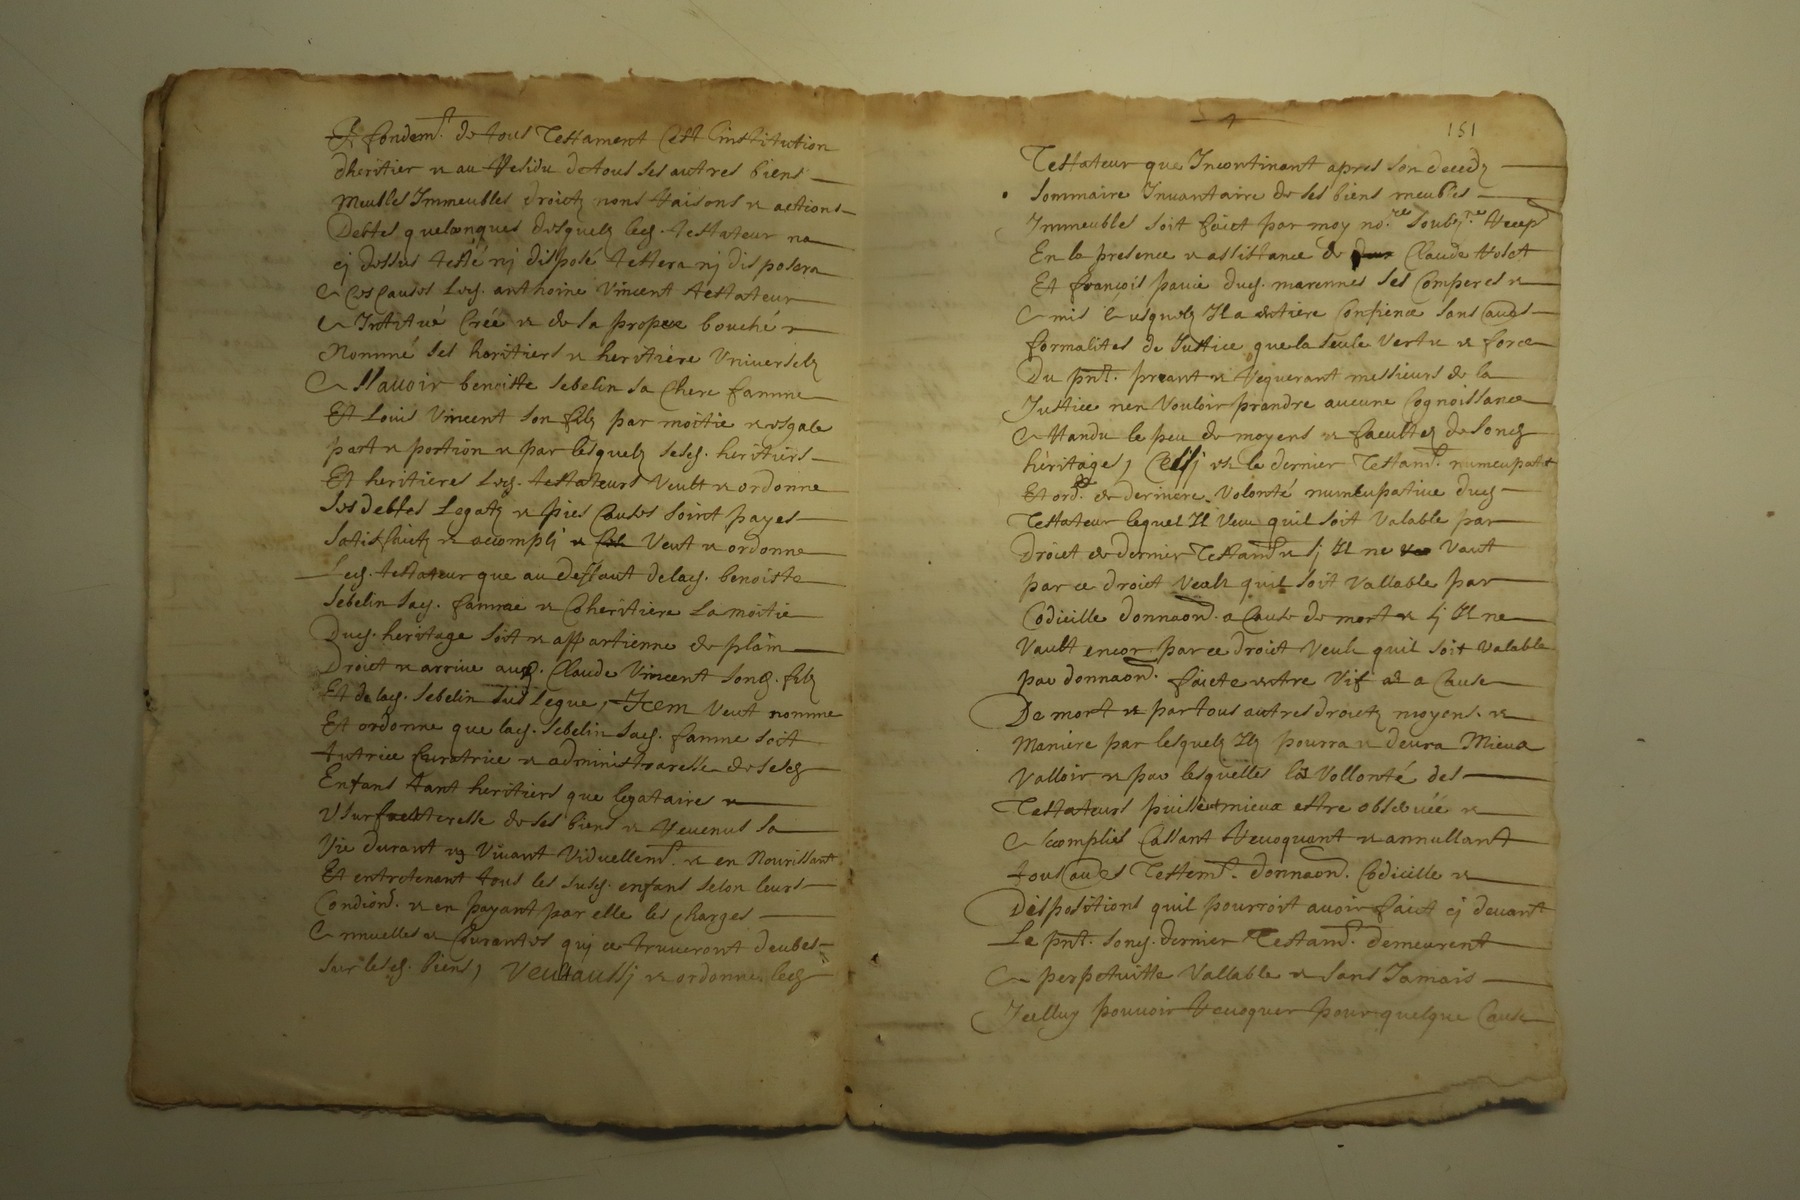 Et fondem.t de tous Testament Cest Linstitution
dheritier et au Residu de tous ses autres biens
Meubles Immeubles droictz noms Raisons et actions
Debtes quelconques desquelz led. testateur na
cj dessus testé nj disposé testera nj disposera
A Ces Causes Led. anthoine Vincent testateur
a Institué Créé et de sa propre bouche
Nommé ses heritiers et heritiere Universelz
A Scavoir benoiste sebelin sa Chere famme
Et Louis Vincent son filz par moitie et esgale
part et portion et par lesquelz sesd. heritiers
Et heritieres Led. testateurs Veult et ordonne
ses debtes Legatz et pies Causes soint payes
satisfaictz et accomplj et Veut et ordonne
Led. testateur que au deffaut de lad. benoiste
sebelin sad. famme et Coheritiere La moitie
Dud. heritage soit et appartienne de plain
Droict et arrive aud. Claude Vincent sond. filz
Et de lad. sebelin sus Legue, Item Veut nomme
Et ordonne que lad. sebelin sad. famme soit
tutrice Curatrice et administraresse de sesd
Enfans tant heritiers que legataires et
Usurfructeresse de ses biens et Revenus sa
Vie durant et Vivant Viduellem.t et en Nourissant
Et entretenant tous les susd. enfans selon leurs
Condiond. et en payant par elle les charges
Annuelles et Courantes quj ce truveront deubes
sur lesd. biens, Veut aussj et ordonne led
151
Testateur que Incontinant apres son decedz
sommaire Invantaire de ses biens meubles
Immeubles soit faict par moy no.re soubz.né Recep
En la presence et assistance de Claude Hulot
Et françois pavie dud. marennes ses Comperes et
Amis Ausquelz Il a entiere Consience sans aultres
formalites de Justice que la seule Vertu et force
Du pnt. priant et Requerant messieurs de la
Justice nen Vouloir prandre aucune Cognoissance
Attandu le peu de moyens et facultez de sond
héritage, Cessj est le dernier Testam.t numcupatif
Et ord. de derniere Volonté numcupative dud
Testateur lequel Il Veut quil soit Valable par
Droict de dernier Testam.t et sj Il ne Vaut
par ce droict Veult quil soit Vallable par
Codicille donnaon. a Cause de mort et sj Il ne
Vault encor par ce droict Veult quil soit Valable
par donnaon. faicte entre Vif et a Cause
De mort et par tous autres droictz moyens et
Maniere par lesquelz Ilz pourra et devra Mieux
Valloir et par lesquelles la Vollonté des
Testateurs puisse mieux estre observée et
Accomplies Cassant Revoquant et annullant
tous autres Testem.t donnaon. Codicille et
Dispositions quil pourroit avoir faict cj devant
Le pnt. sond. dernier Testam.t demeurent
A perpetuitte Vallable et sans Jamais
Icelluy pouvoir Revoquer pour quelque Cause